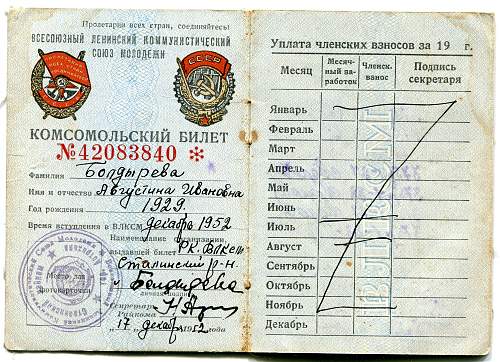 Пролетарии всех стран, соединяйтесь!
ВСЕСОЮЗНЫЙ ЛЕНИНСКИЙ КОММУНИСТИЧЕСКИЙ
СОЮЗ МОЛОДЕЖИ
СССР
КОМСОМОЛЬСКИЙ БИЛЕТ
№42083840 *
Фамилия Болдырева
Имя и отчество Августина Ивановна
Год рождения 1929
Время вступления в ВЛКСМ декабрь 1952
Наименование организации,
выдавшей билет РК. ВЛКСМ
Сталинский р-н
Место для фотокарточки
Личная подпись Болдырева
Секретарь
Райкома
"17" декабр 1952 года
Уплата членских взносов за 19 г.
Месяц Месячный заработок Членск. взнос Подпись секретаря
Январь
Февраль
Март
Апрель
Май
Июнь
Июль
Август
Сентябрь
Октябрь
Ноябрь
Декабрь